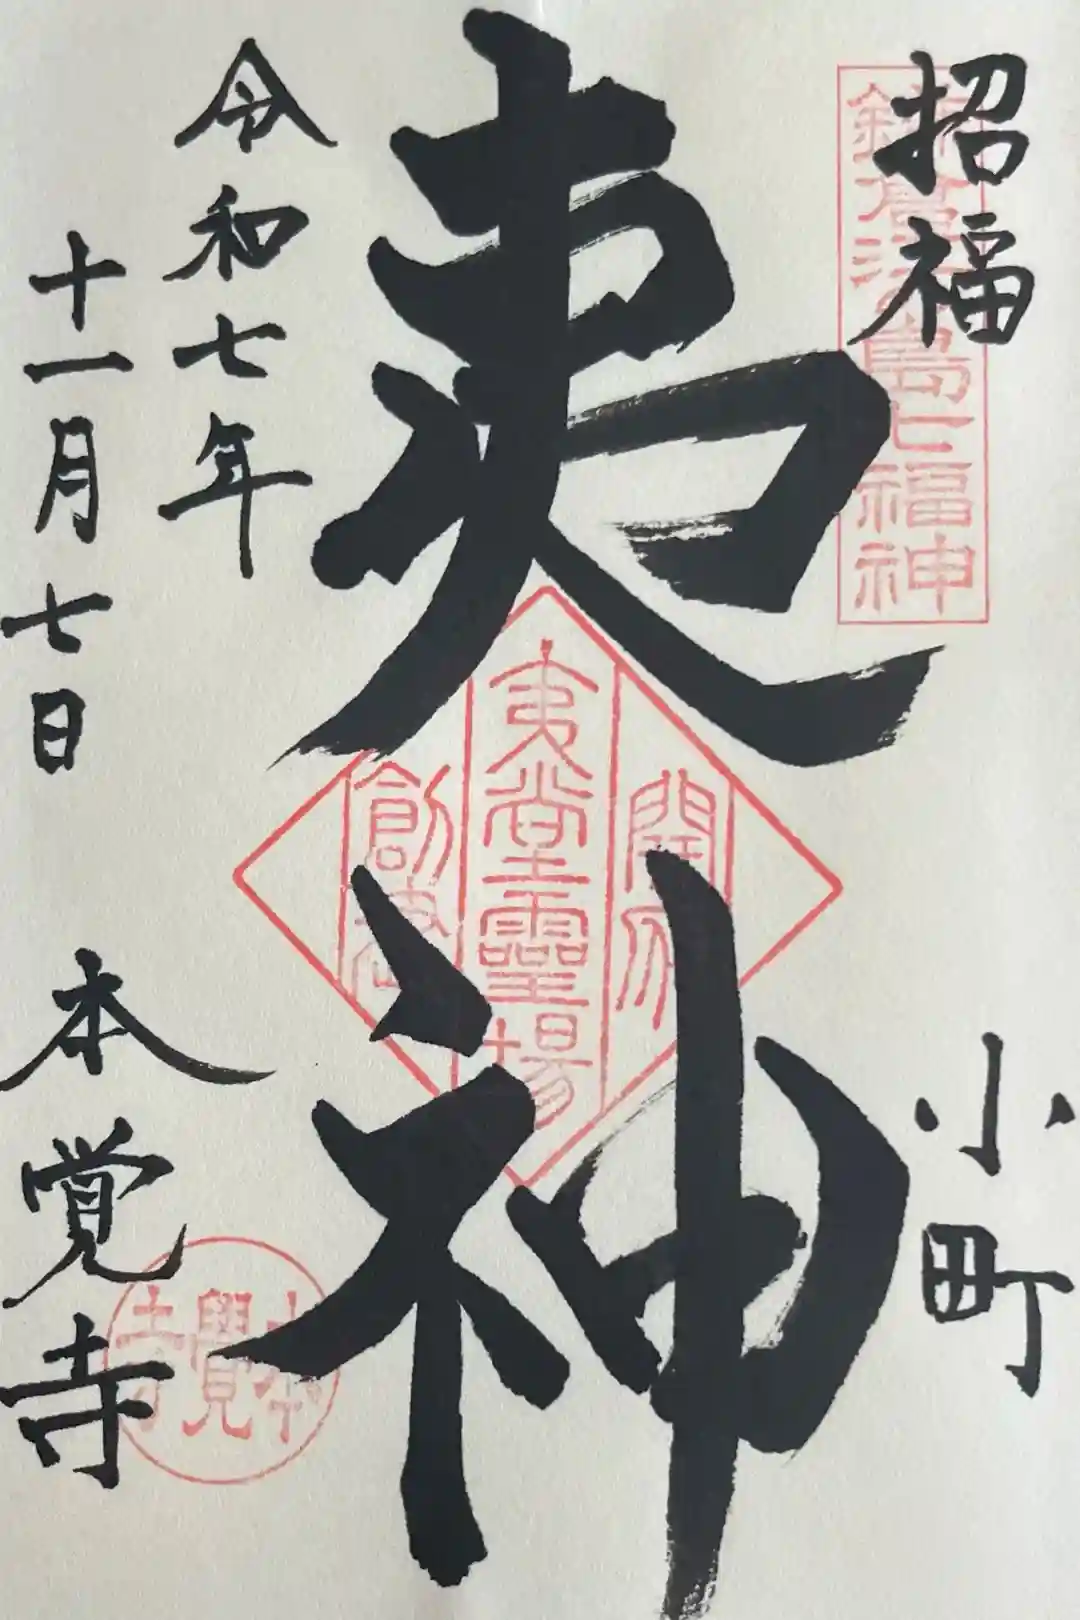 招福
小町
鎌倉江ノ島七福神
夷神
開府
夷堂霊場
創建
令和七年
十一月七日
本覚寺
本覺寺